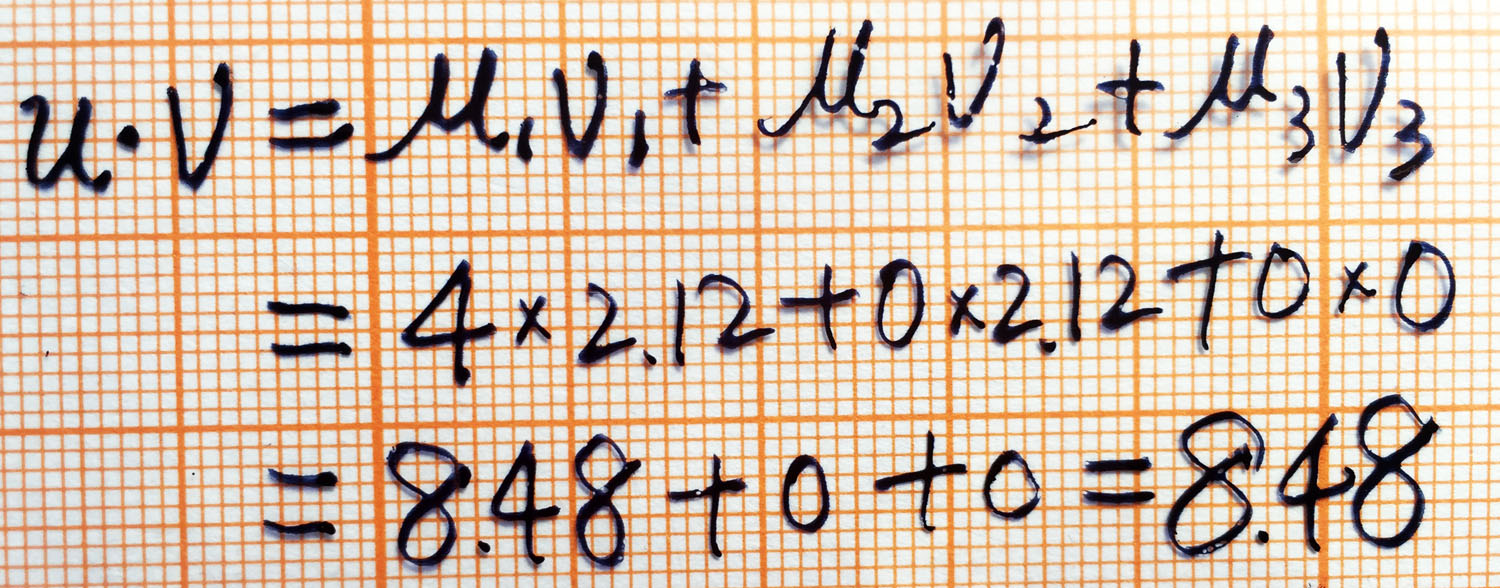 u·v = μ₁v₁ + μ₂v₂ + μ₃v₃
= 4×2.12+0×2.12+0×0
= 8.48+0+0=8.48